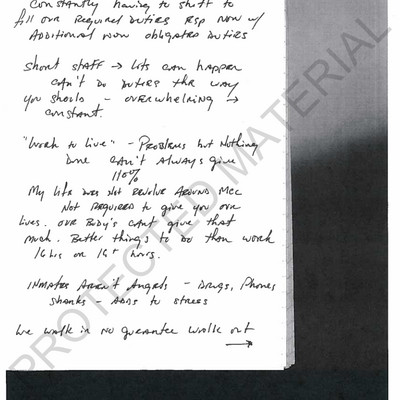 Constantly having to shift to
fill our required duties esp now w/
Additional now obligated duties
Short staff → lots can happen
can't do duties the way
you should - overwhelming →
constant.
"Work to live" - Problems but nothing
done can't always give
110%
My life does not revolve around MCC
Not required to give you our
lives. Our body's can't give that
much. Better things to do than work
16 hrs or 16+ hours.
Inmates aren't angels - Drugs, Phones
shanks - adds to stress
We walk in no guarantee walk out
→
PROTECTED MATERIAL